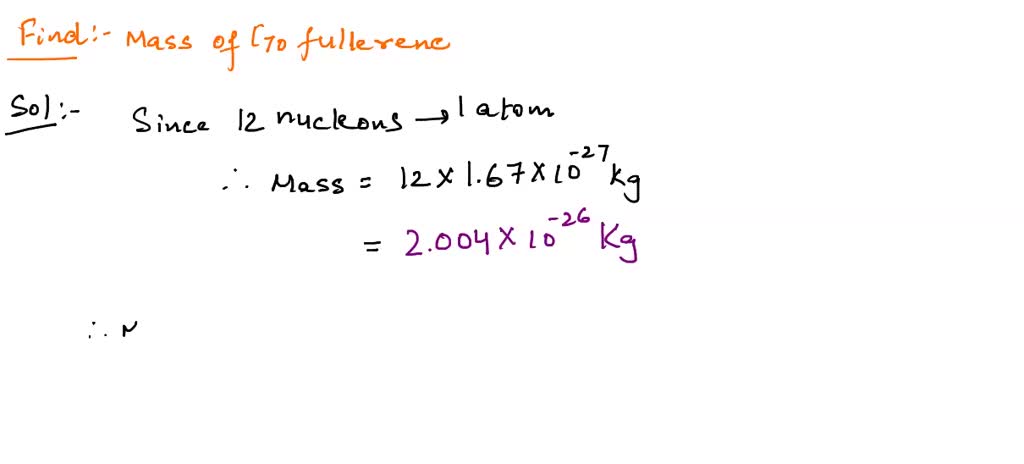 Find:- Mass of C70 fullerene
Sol:- Since 12 nucleons → 1 atom
∴ Mass = 12 × 1.67 × 10^-27 kg
= 2.004 × 10^-26 Kg
∴ M